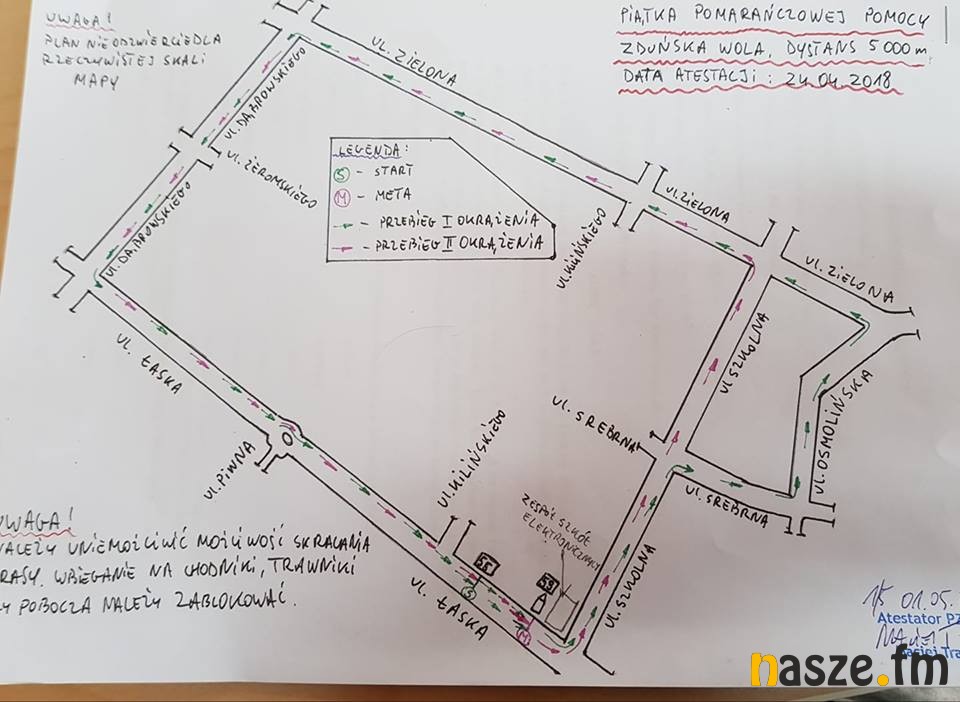 UWAGA!
PLAN NIE ODZWIERCIEDLA
RZECZYWISTEJ SKALI
MAPY
PIĄTKA POMARAŃCZOWEJ POMOCY
ZDUŃSKA WOLA, DYSTANS 5000m
DATA ATESTACJI: 24.04.2018
ul. ZIELONA
ul. DĄBROWSKIEGO
ul. ŻEROMSKIEGO
LEGENDA:
S - START
M - META
- PRZEBIEG I OKRĄŻENIA
- PRZEBIEG II OKRĄŻENIA
ul. ZIELONA
ul. KILIŃSKIEGO
ul. DĄBROWSKIEGO
ul. ZIELONA
ul. SZKOLNA
ul. ŁASKA
ul. OSMOLIŃSKA
ul. SREBRNA
ul. PIWNA
ul. KILIŃSKIEGO
ul. SREBRNA
ZESPÓŁ SZKÓŁ
ELEKTRONICZNYCH
UWAGA!
NALEŻY UNIEMOŻLIWIĆ MOŻLIWOŚĆ SKRACANIA
TRASY. WBIEGANIE NA CHODNIKI, TRAWNIKI
CZY POBOCZA NALEŻY ZABLOKOWAĆ.
ul. SZKOLNA
S
M
ul. ŁASKA
01.05.
Atestator PZ
Maciej Tra
nasze.fm